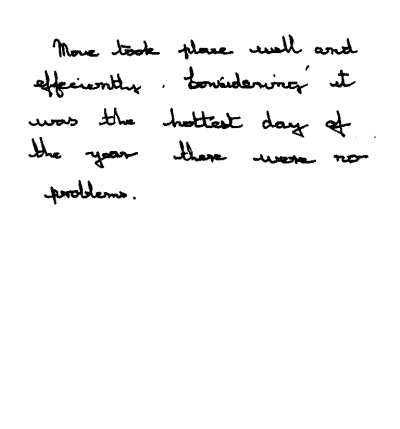 Move took place well and
efficiently. Considering it
was the hottest day of
the year there were no
problems.